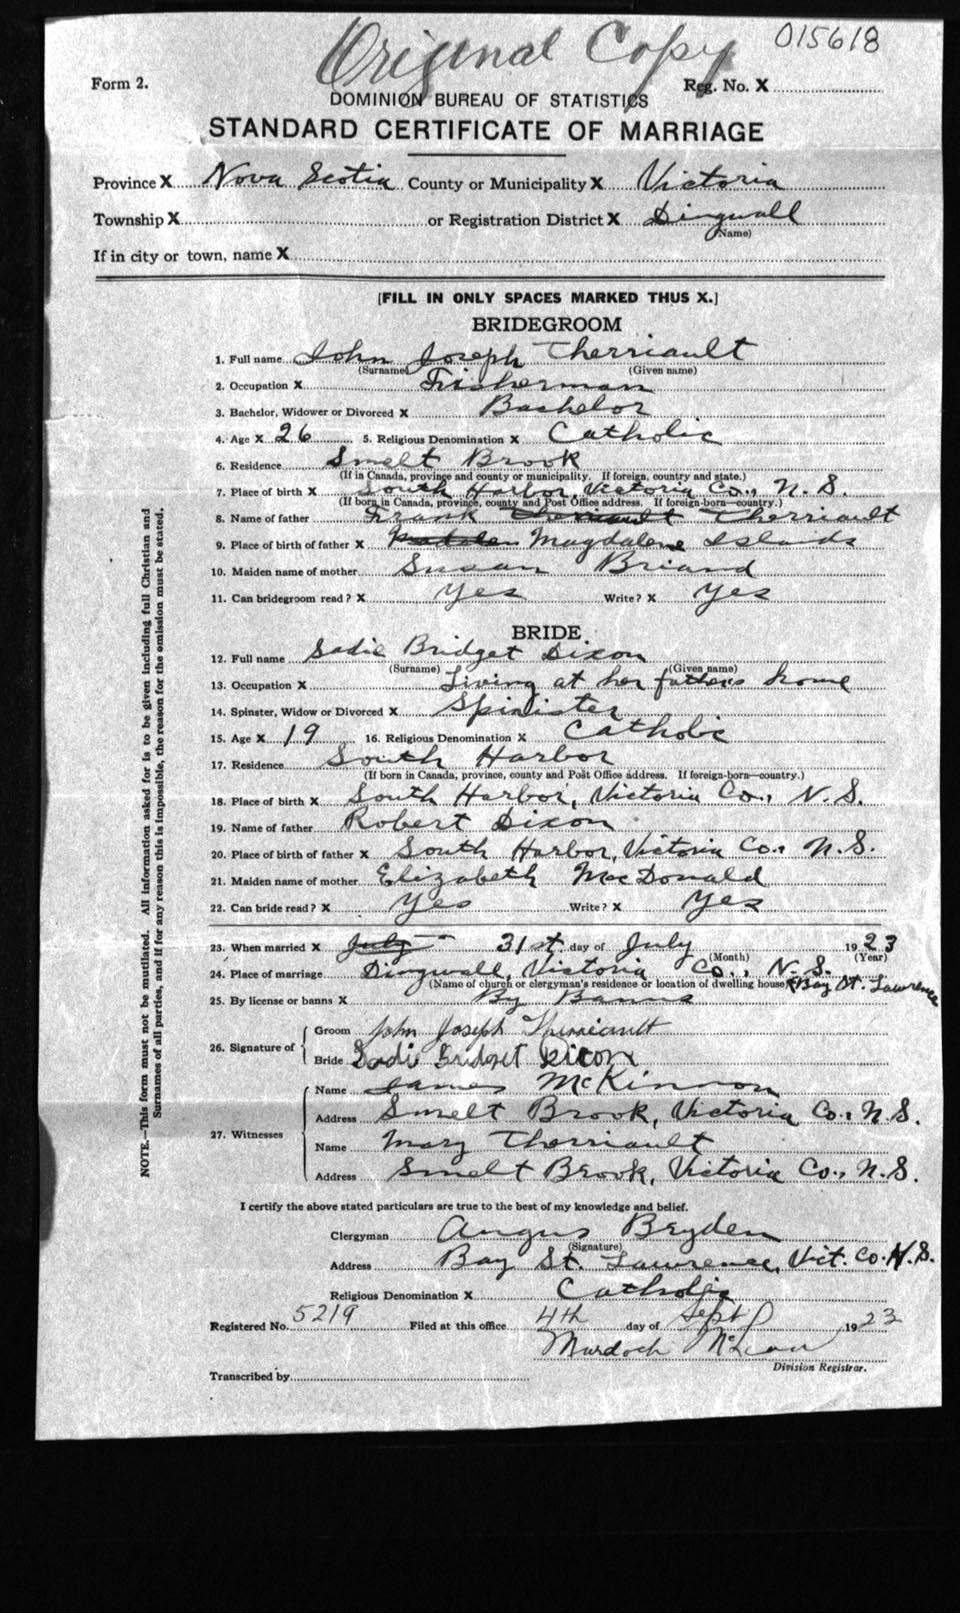 Original Copy 015618
Form 2. Reg. No. X
DOMINION BUREAU OF STATISTICS
STANDARD CERTIFICATE OF MARRIAGE
Province X Nova Scotia County or Municipality X Victoria
Township X or Registration District X Dingwall
(Name)
If in city or town, name X
[FILL IN ONLY SPACES MARKED THUS X.]
BRIDEGROOM
1. Full name John Joseph Therriault
(Surname) (Given name)
2. Occupation X Fisherman
3. Bachelor, Widower or Divorced X Bachelor
4. Age X 26 5. Religious Denomination X Catholic
6. Residence Smelt Brook
(If in Canada, province and county or municipality. If foreign, country and state.)
7. Place of birth X South Harbor, Victoria Co., N. S.
(If born in Canada, province, county and Post Office address. If foreign-born—country.)
8. Name of father Frank Therriault Therriault
9. Place of birth of father X Magdalene Islands
10. Maiden name of mother Susan Briand
11. Can bridegroom read? X Yes Write? X Yes
BRIDE
12. Full name Sadie Bridget Dixon
(Surname) (Given name)
13. Occupation X Living at her father's home
14. Spinster, Widow or Divorced X Spinister
15. Age X 19 16. Religious Denomination X Catholic
17. Residence South Harbor
(If born in Canada, province, county and Post Office address. If foreign-born—country.)
18. Place of birth X South Harbor, Victoria Co., N. S.
19. Name of father Robert Dixon
20. Place of birth of father X South Harbor, Victoria Co., N. S.
21. Maiden name of mother Elizabeth MacDonald
22. Can bride read? X Yes Write? X Yes
23. When married X July 31st. day of July 1923
(Month) (Year)
24. Place of marriage Dingwall, Victoria Co., N. S.
(Name of church or clergyman's residence or location of dwelling house) Bay St. Lawrence
25. By license or banns X By Banns
26. Signature of
Groom John Joseph Therriault
Bride Sadi Bridget Dixon
27. Witnesses
Name James McKinnon
Address Smelt Brook, Victoria Co., N. S.
Name Mary Therriault
Address Smelt Brook, Victoria Co., N. S.
I certify the above stated particulars are true to the best of my knowledge and belief.
Clergyman Angus Bryden
(Signature)
Address Bay St. Lawrence, Vict. Co. N. S.
Religious Denomination X Catholic
Registered No. 5219 Filed at this office 4th day of Sept 1923
Murdoch McLean
Division Registrar.
Transcribed by
NOTE.—This form must not be mutilated. All information asked for is to be given including full Christian and
Surnames of all parties, and if for any reason this is impossible, the reason for the omission must be stated.